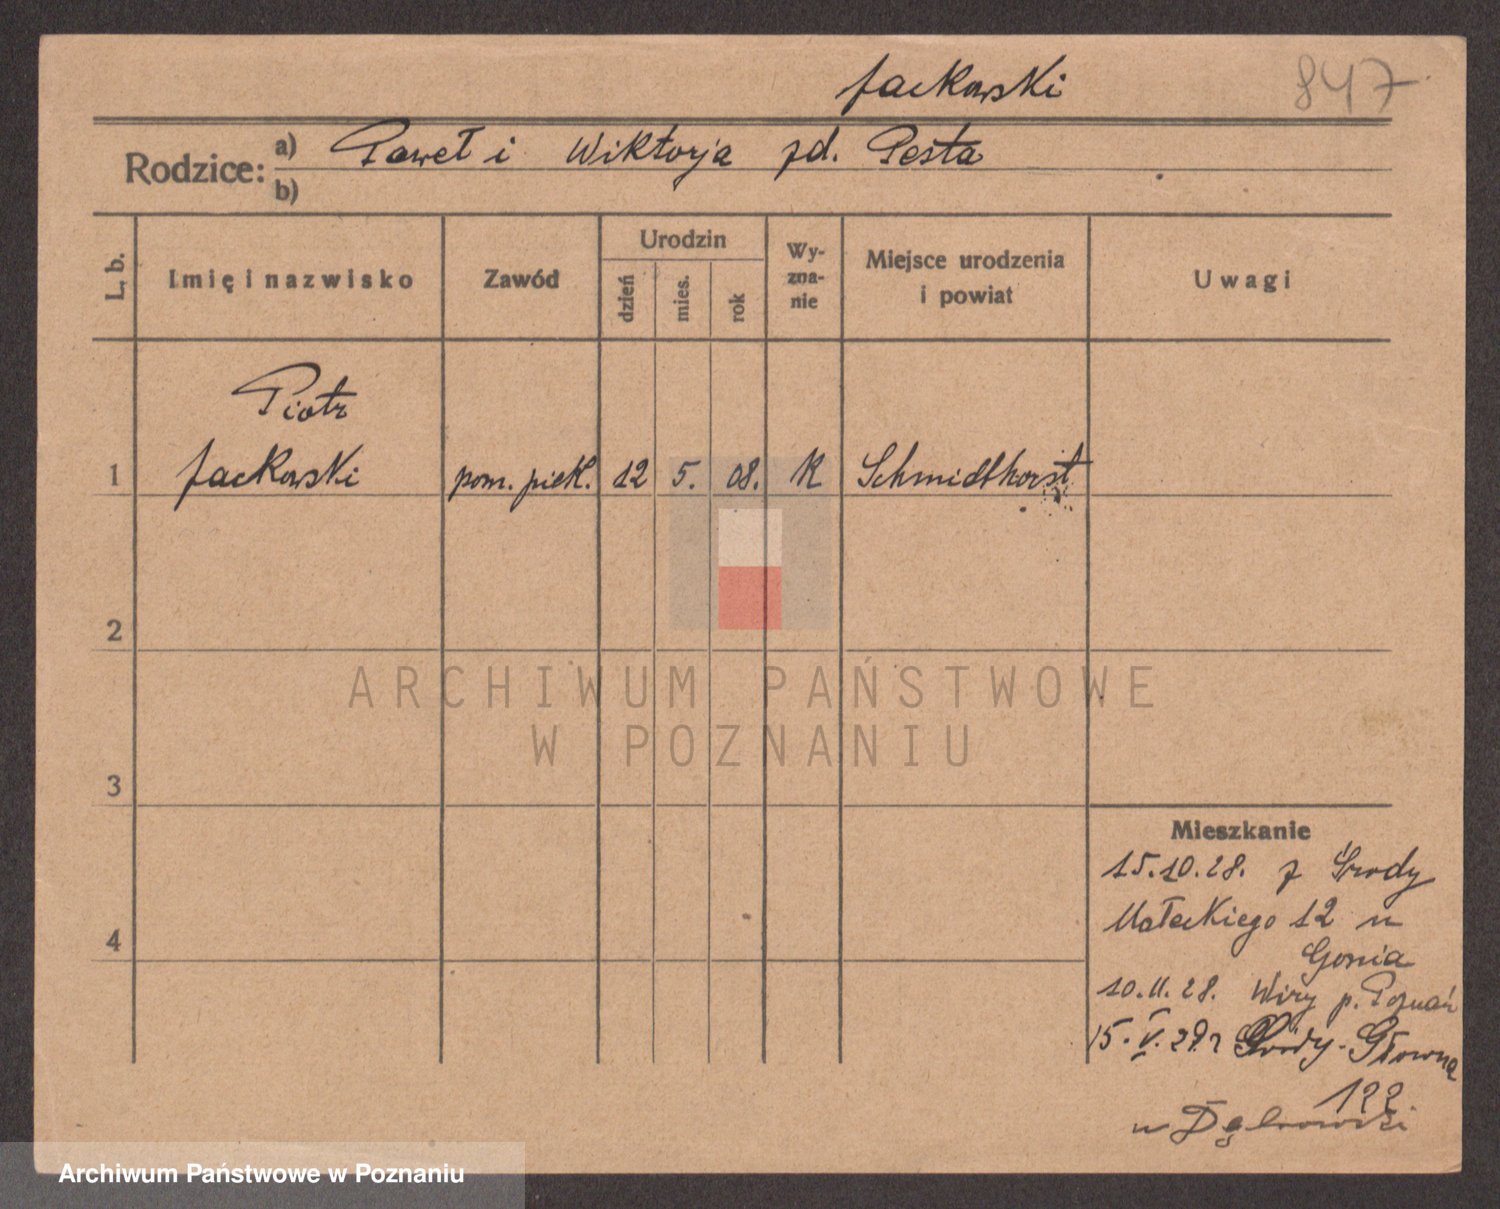 Jackowski
847
Rodzice: a) Paweł i Wiktorja zd. Pesta
b)
L. b.
Imię i nazwisko
Zawód
Urodzin
dzień
mies.
rok
Wy-
zna-
nie
Miejsce urodzenia
i powiat
Uwagi
Piotr
1 Jackowski pom. piek. 12 5. 08. K Schmidthorst
2
3
4
Mieszkanie
15.10.28. z Środy
Małeckiego 12 u
Gonia
10.11.28. Wiry p. Poznań
15.V.29 r Środy - Głowna
122
u Dąbrowski
ARCHIWUM PAŃSTWOWE
W POZNANIU
Archiwum Państwowe w Poznaniu